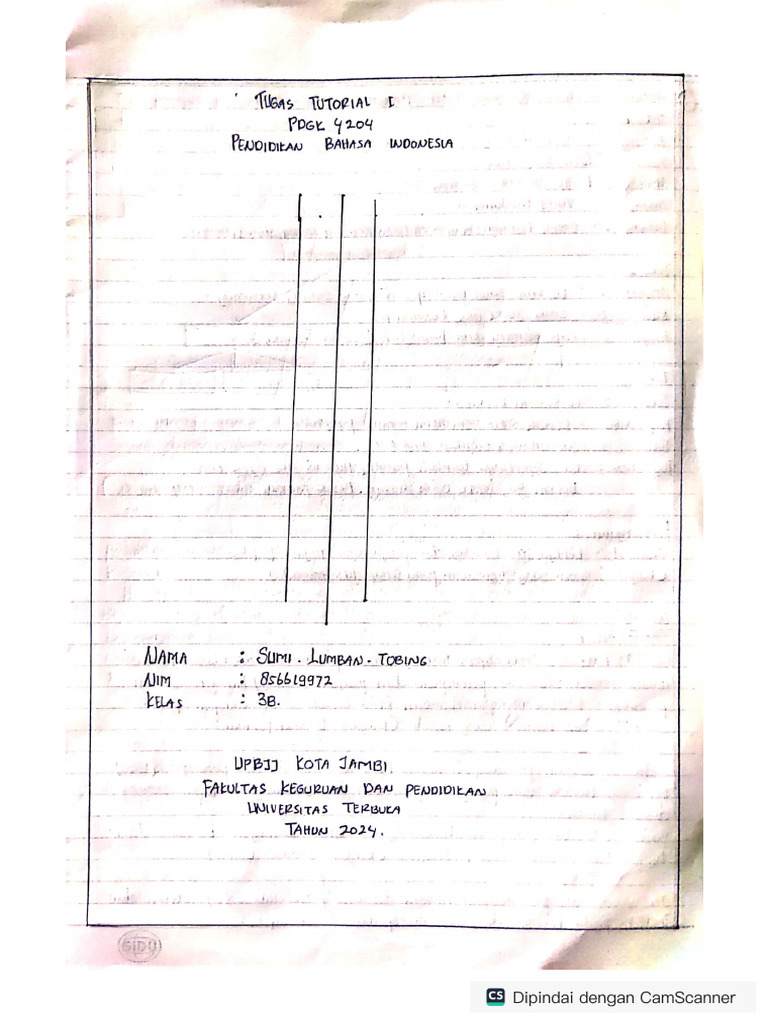 TUGAS TUTORIAL I
PDGK 4204
PENDIDIKAN BAHASA INDONESIA
NAMA : SUMI . LUMBAN - TOBING
NIM : 856619972
KELAS : 3B.
UPBJJ KOTA JAMBI.
FAKULTAS KEGURUAN DAN PENDIDIKAN
UNIVERSITAS TERBUKA
TAHUN 2024.
SIDU
CS Dipindai dengan CamScanner